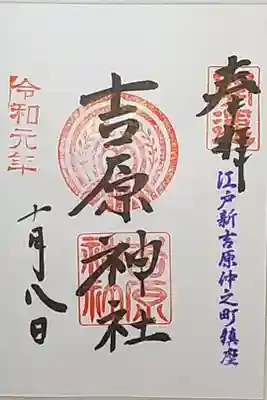 奉拝
江戸新吉原仲之町鎮座
吉原神社
令和元年
十月八日